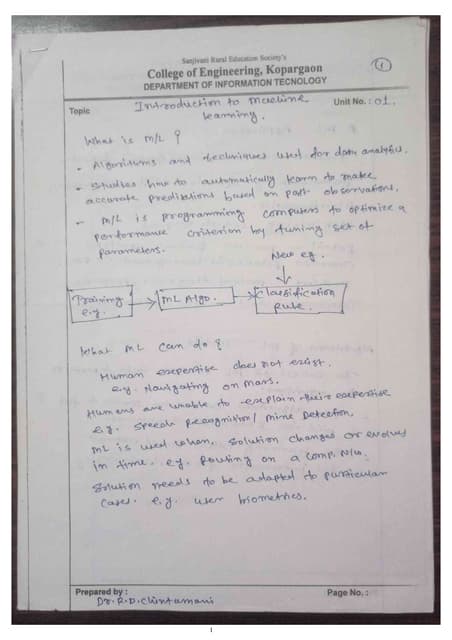 Sanjivani Rural Education Society's
College of Engineering, Kopargaon
DEPARTMENT OF INFORMATION TECNOLOGY
1
Topic Introduction to Machine Unit No. : 01.
Learning.
What is M/L ?
- Algorithms and techniques used for data analytics.
- Studies how to automatically learn to make
accurate predictions based on past observations,
- M/L is programming computers to optimize a
performance criterion by tuning set of
Parameters.
New eg.
Training e.g. → ML Algo. → Classification Rule.
What ML can do ?
Human expertise does not exist.
e.g. Navigating on Mars.
Humans are unable to explain their expertise
e.g. Speech Recognition / Mine Detection,
ML is used when, Solution changes or evolves
in time. e.g. Routing on a comp. N/w.
Solution needs to be adapted to particular
cases. e.g. user biometrics.
Prepared by : Page No. :
Dr. R.D. Chintamani
i